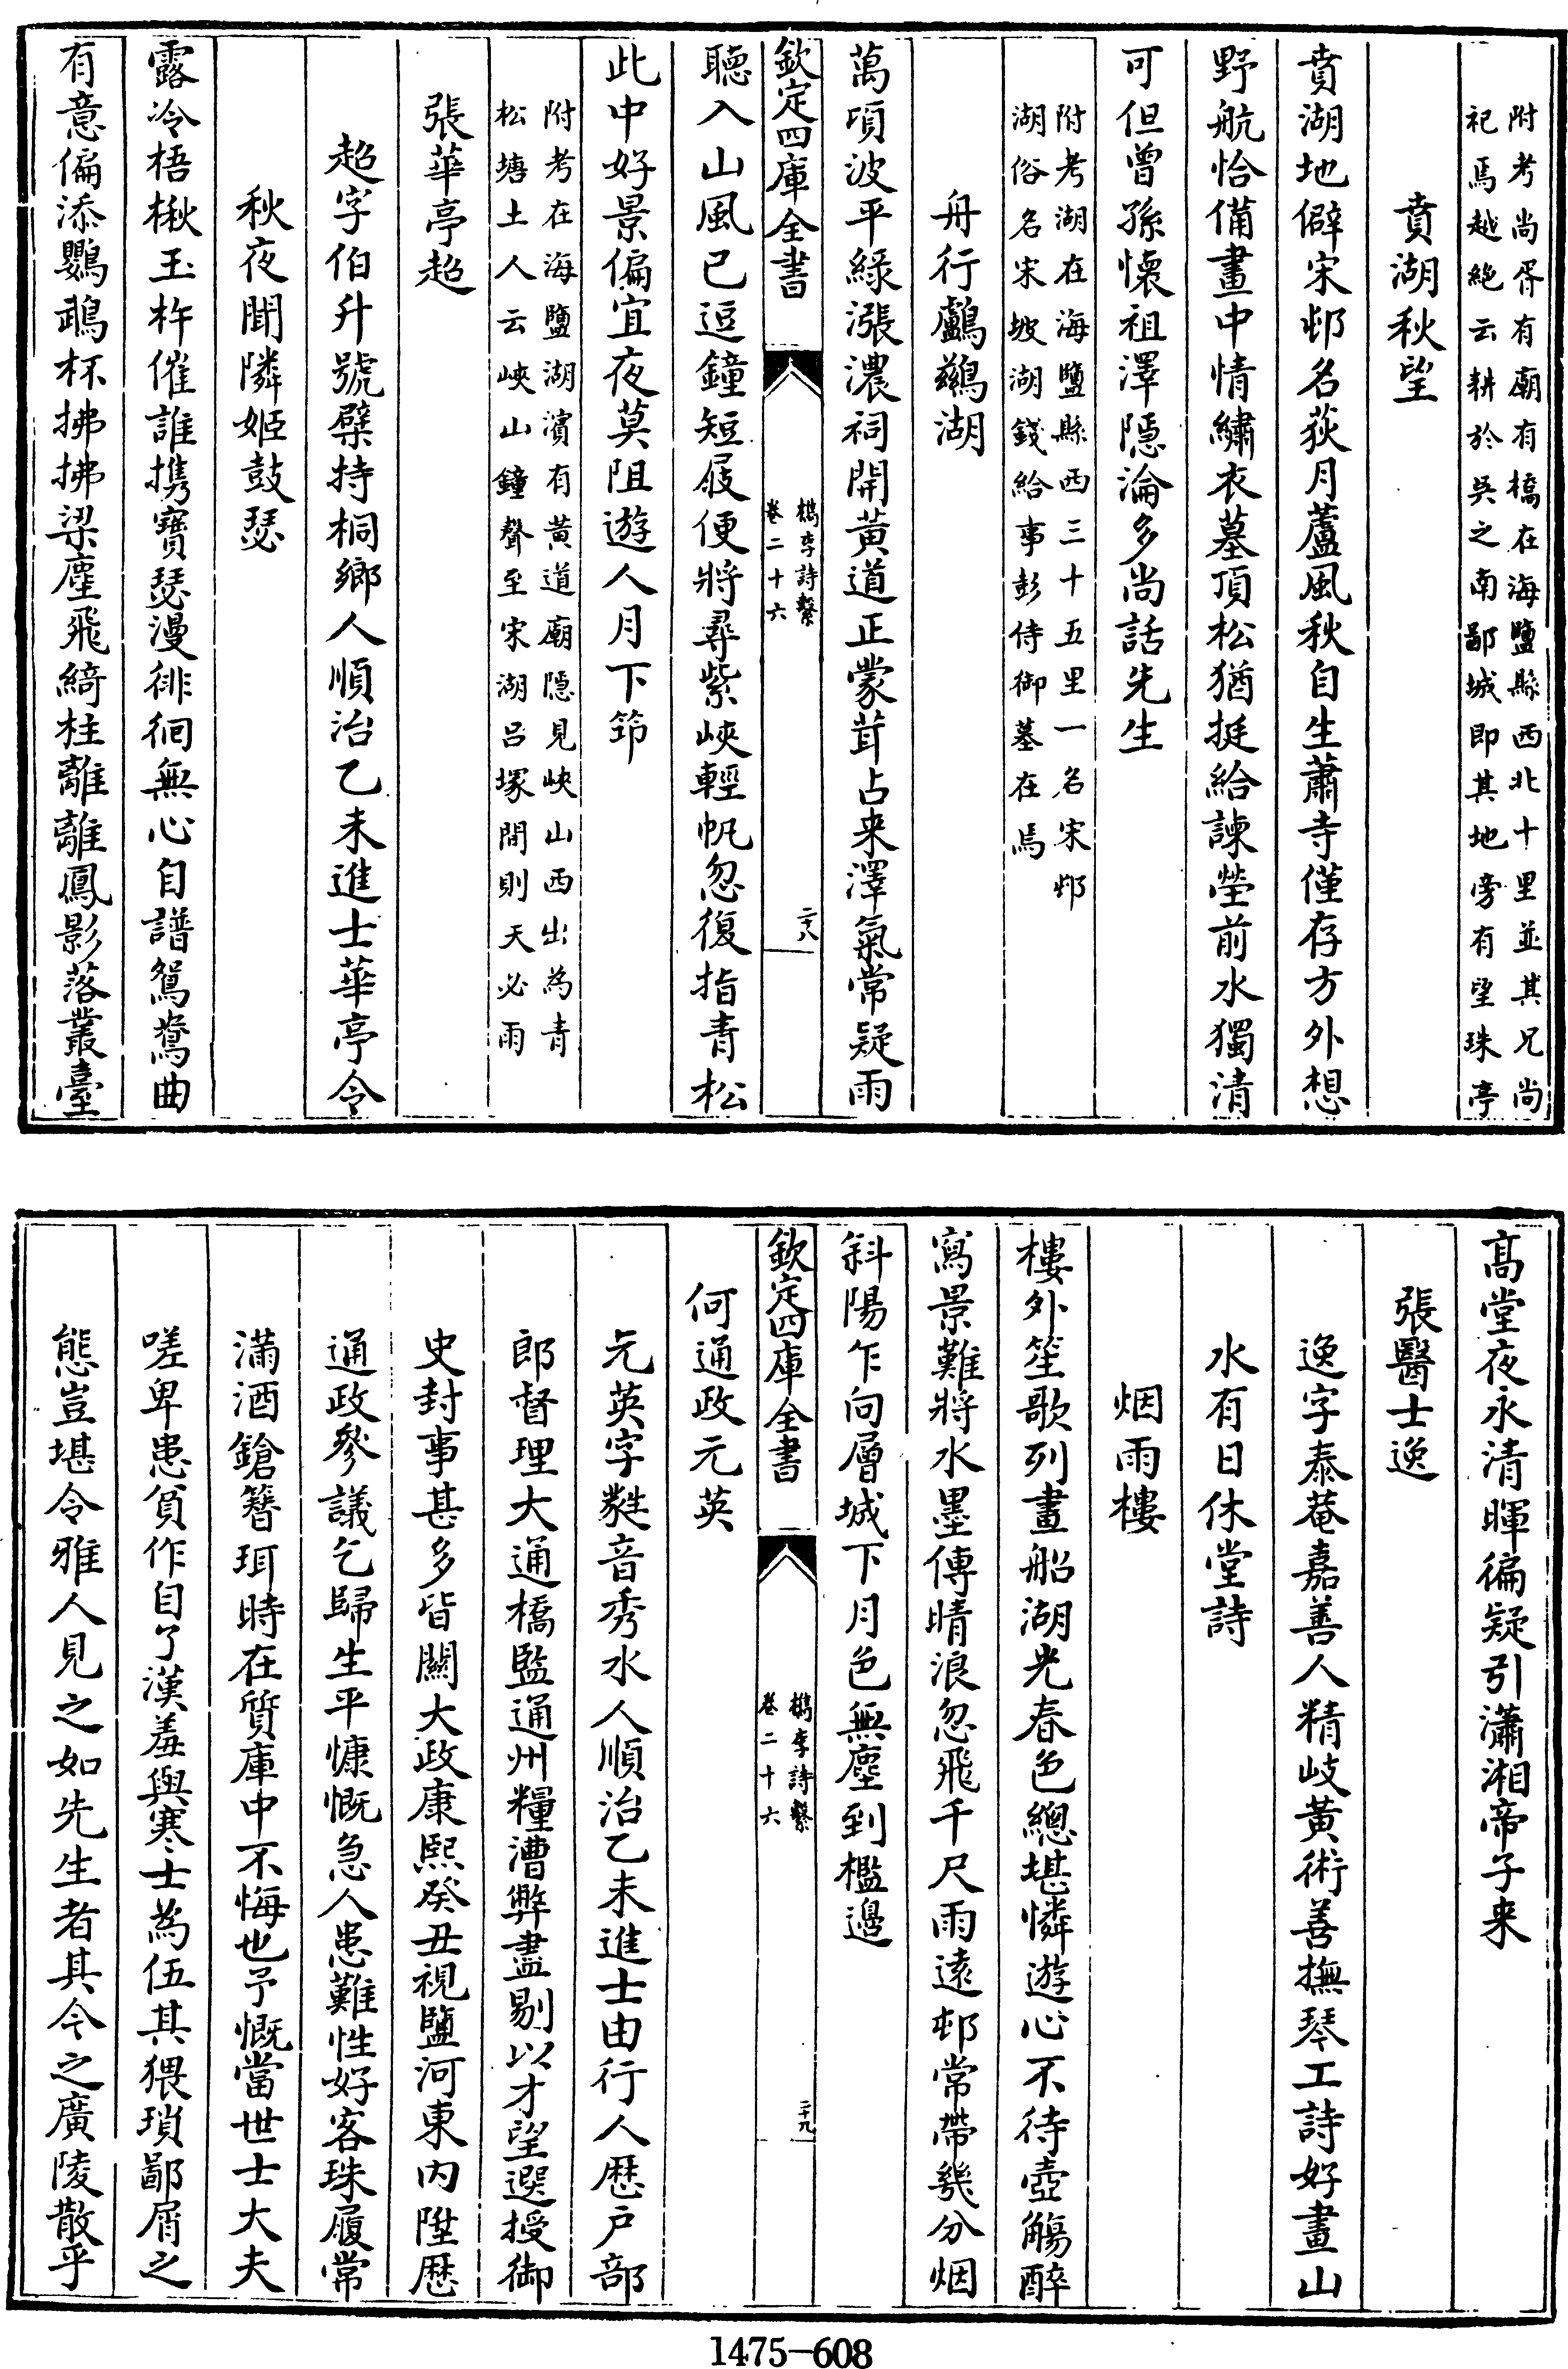 附考尚胥有廟有橋在海鹽縣西北十里並其兄尚
祀焉越絶云耕於吳之南鄙城即其地旁有望珠亭
賁湖秋望
賁湖地僻宋邨名荻月蘆風秋自生蕭寺僅存方外想
野航恰備畫中情繡衣墓頂松猶挺給諫塋前水獨清
可但曾孫懐祖澤隱淪多尚話先生
附考湖在海鹽縣西三十五里一名宋邨
湖俗名宋坡湖錢給事彭侍御墓在焉
舟行鸕鷀湖
萬項波平緑漲濃祠開黃道正蒙茸占来澤氣常疑雨
欽定四庫全書
檇李詩繫
卷二十六
二十八
聽入山風已逗鐘短屐便將尋紫峽輕帆忽復指青松
此中好景偏宜夜莫阻遊人月下笻
附考在海鹽湖濱有黃道廟隱見峽山西出為青
松塘土人云峽山鐘聲至宋湖呂塚間則天必雨
張華亭超
超字伯升號檗持桐鄉人順治乙未進士華亭令
秋夜聞隣姬鼓瑟
露冷梧楸玉杵催誰携寶瑟漫徘徊無心自譜鴛鴦曲
有意偏添鸚鵡杯拂拂梁塵飛綺柱離離鳳影落叢臺
髙堂夜永清暉徧疑引瀟湘帝子来
張醫士逸
逸字泰菴嘉善人精岐黃術善撫琴工詩好畫山
水有日休堂詩
烟雨樓
樓外笙歌列畫船湖光春色總堪憐遊心不待壺觴醉
寫景難將水墨傳晴浪忽飛千尺雨遠邨常帶幾分烟
斜陽乍向層城下月色無塵到檻邊
欽定四庫全書
檇李詩繫
卷二十六
二十九
何通政元英
元英字蕤音秀水人順治乙未進士由行人歴户部
郎督理大通橋監通州糧漕弊盡剔以才望選授御
史封事甚多皆關大政康熙癸丑視鹽河東内陞歴
通政參議乞歸生平慷慨急人患難性好客珠履常
滿酒鎗簪珥時在質庫中不悔也予慨當世士大夫
嗟卑患貧作自了漢羞與寒士為伍其猥瑣鄙屑之
態豈堪令雅人見之如先生者其今之廣陵散乎
1475-608